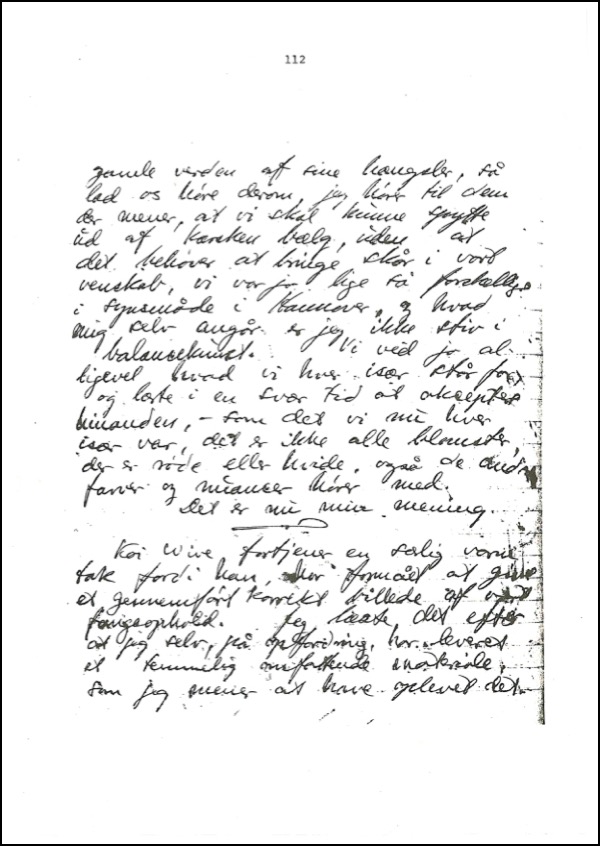 112
gamle verden af sine hængsler, så
lad os höre derom, jeg hörer til dem
der mener, at vi skal kunne spytte
ud af karsken bælg, uden at
det behöver at bringe skår i vort
venskab, vi var jo lige så forskellige
i synsmåde i Hannover, og hvad
mig selv angår er jeg ikke stiv i
balancekunst. Vi ved jo al-
ligevel hvad vi hver især står for,
og lærte i en svær tid at akceptere
hinanden, – som det vi nu hver
især var, det er ikke alle blomster,
der er röde eller hvide, også de andre
farver og nuancer hörer med.
Det er nu min mening.
Kai Wive fortjener en særlig varm
tak fordi han, har formået at give
et gennemfört korrekt billede af vort
fangeophold. Jeg læste det efter
at jeg selv, på opfordring, har leveret
et temmelig omfattende materiale,
som jeg mener at have oplevet det